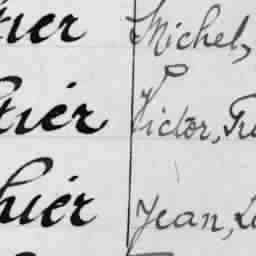 tier Michel,
tier Victor, Fré
hier Jean, Lo